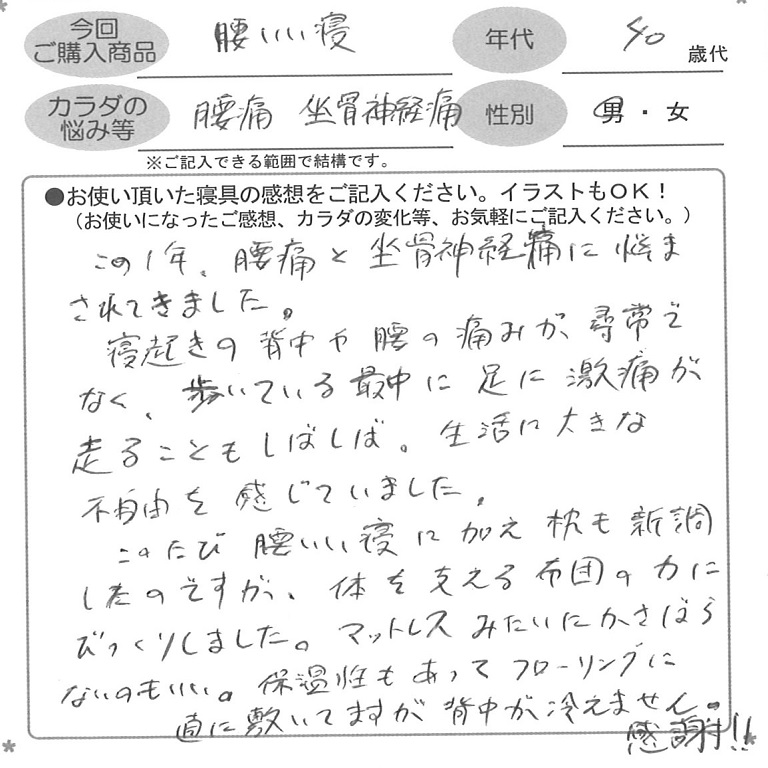 今回
ご購入商品
腰いい寝
年代
40
歳代
カラダの
悩み等
腰痛 坐骨神経痛
性別
男・女
※ご記入できる範囲で結構です。
●お使い頂いた寝具の感想をご記入ください。イラストもOK!
(お使いになったご感想、カラダの変化等、お気軽にご記入ください。)
この1年、腰痛と坐骨神経痛に悩ま
されてきました。
寝起きの背中や腰の痛みが、尋常で
なく、歩いている最中に足に激痛が
走ることもしばしば。生活に大きな
不自由を感じていました。
このたび腰いい寝に加え枕も新調
したのですが、体を支える布団の力に
びっくりしました。マットレスみたいにかさばら
ないのもいい。保温性もあってフローリングに
直に敷いてますが背中が冷えません。
感謝!!